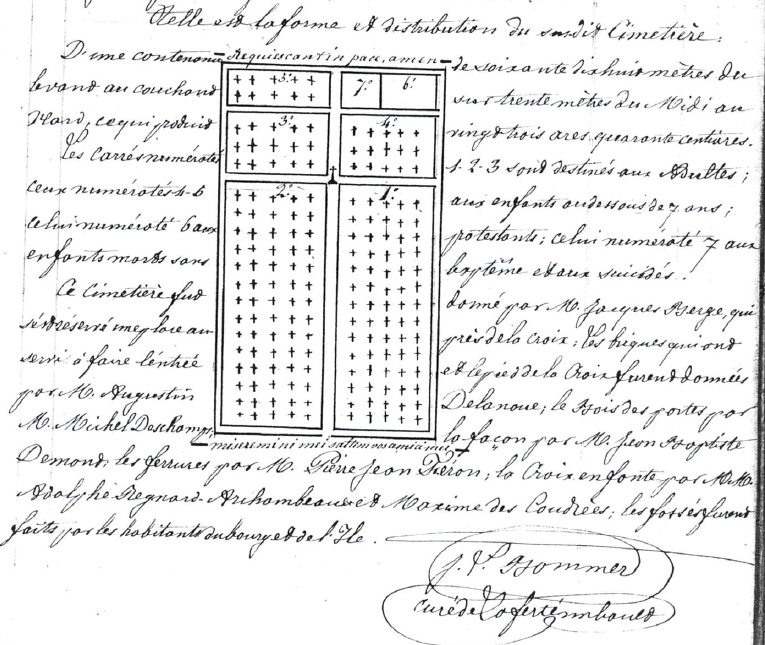 Telle est la forme et distribution du susdit Cimetière.
Requiescant in pace, amen
D'une contenance de soixante dix huit mètres du
levant au couchant sur trente mètres du Midi au
Nord, ce qui produit vingt trois ares, quarante centiares.
Les Carrés numérotés 1-2-3 sont destinés aux Adultes;
ceux numérotés 4-5 aux enfants au dessous de 7 ans;
celui numéroté 6 aux protestants; celui numéroté 7 aux
enfants morts sans baptême et aux suicidés.
Ce Cimetière fut donné par M. Jacques Berge, qui
s'est réservé une place au près de la Croix; les briques qui ont
servi à faire l'entrée et le pied de la Croix furent données
par M. Augustin Delanoue; le Bois des portes par
M. Michel Deschamps, la façon par M. Jean Baptiste
Demond, les ferrures par M. Pierre Jean Féron; la Croix en fonte par M.M.
Adolphe Regnard-Archambeau et Maxime des Coudrées; les fossés furent
faits par les habitants du bourg et de l'Ile.
5e
7e
6e
3e
4e
2e
1e
miseremini mei saltem vos amici mei
J. P. Bommer
curé de Laferté imbault